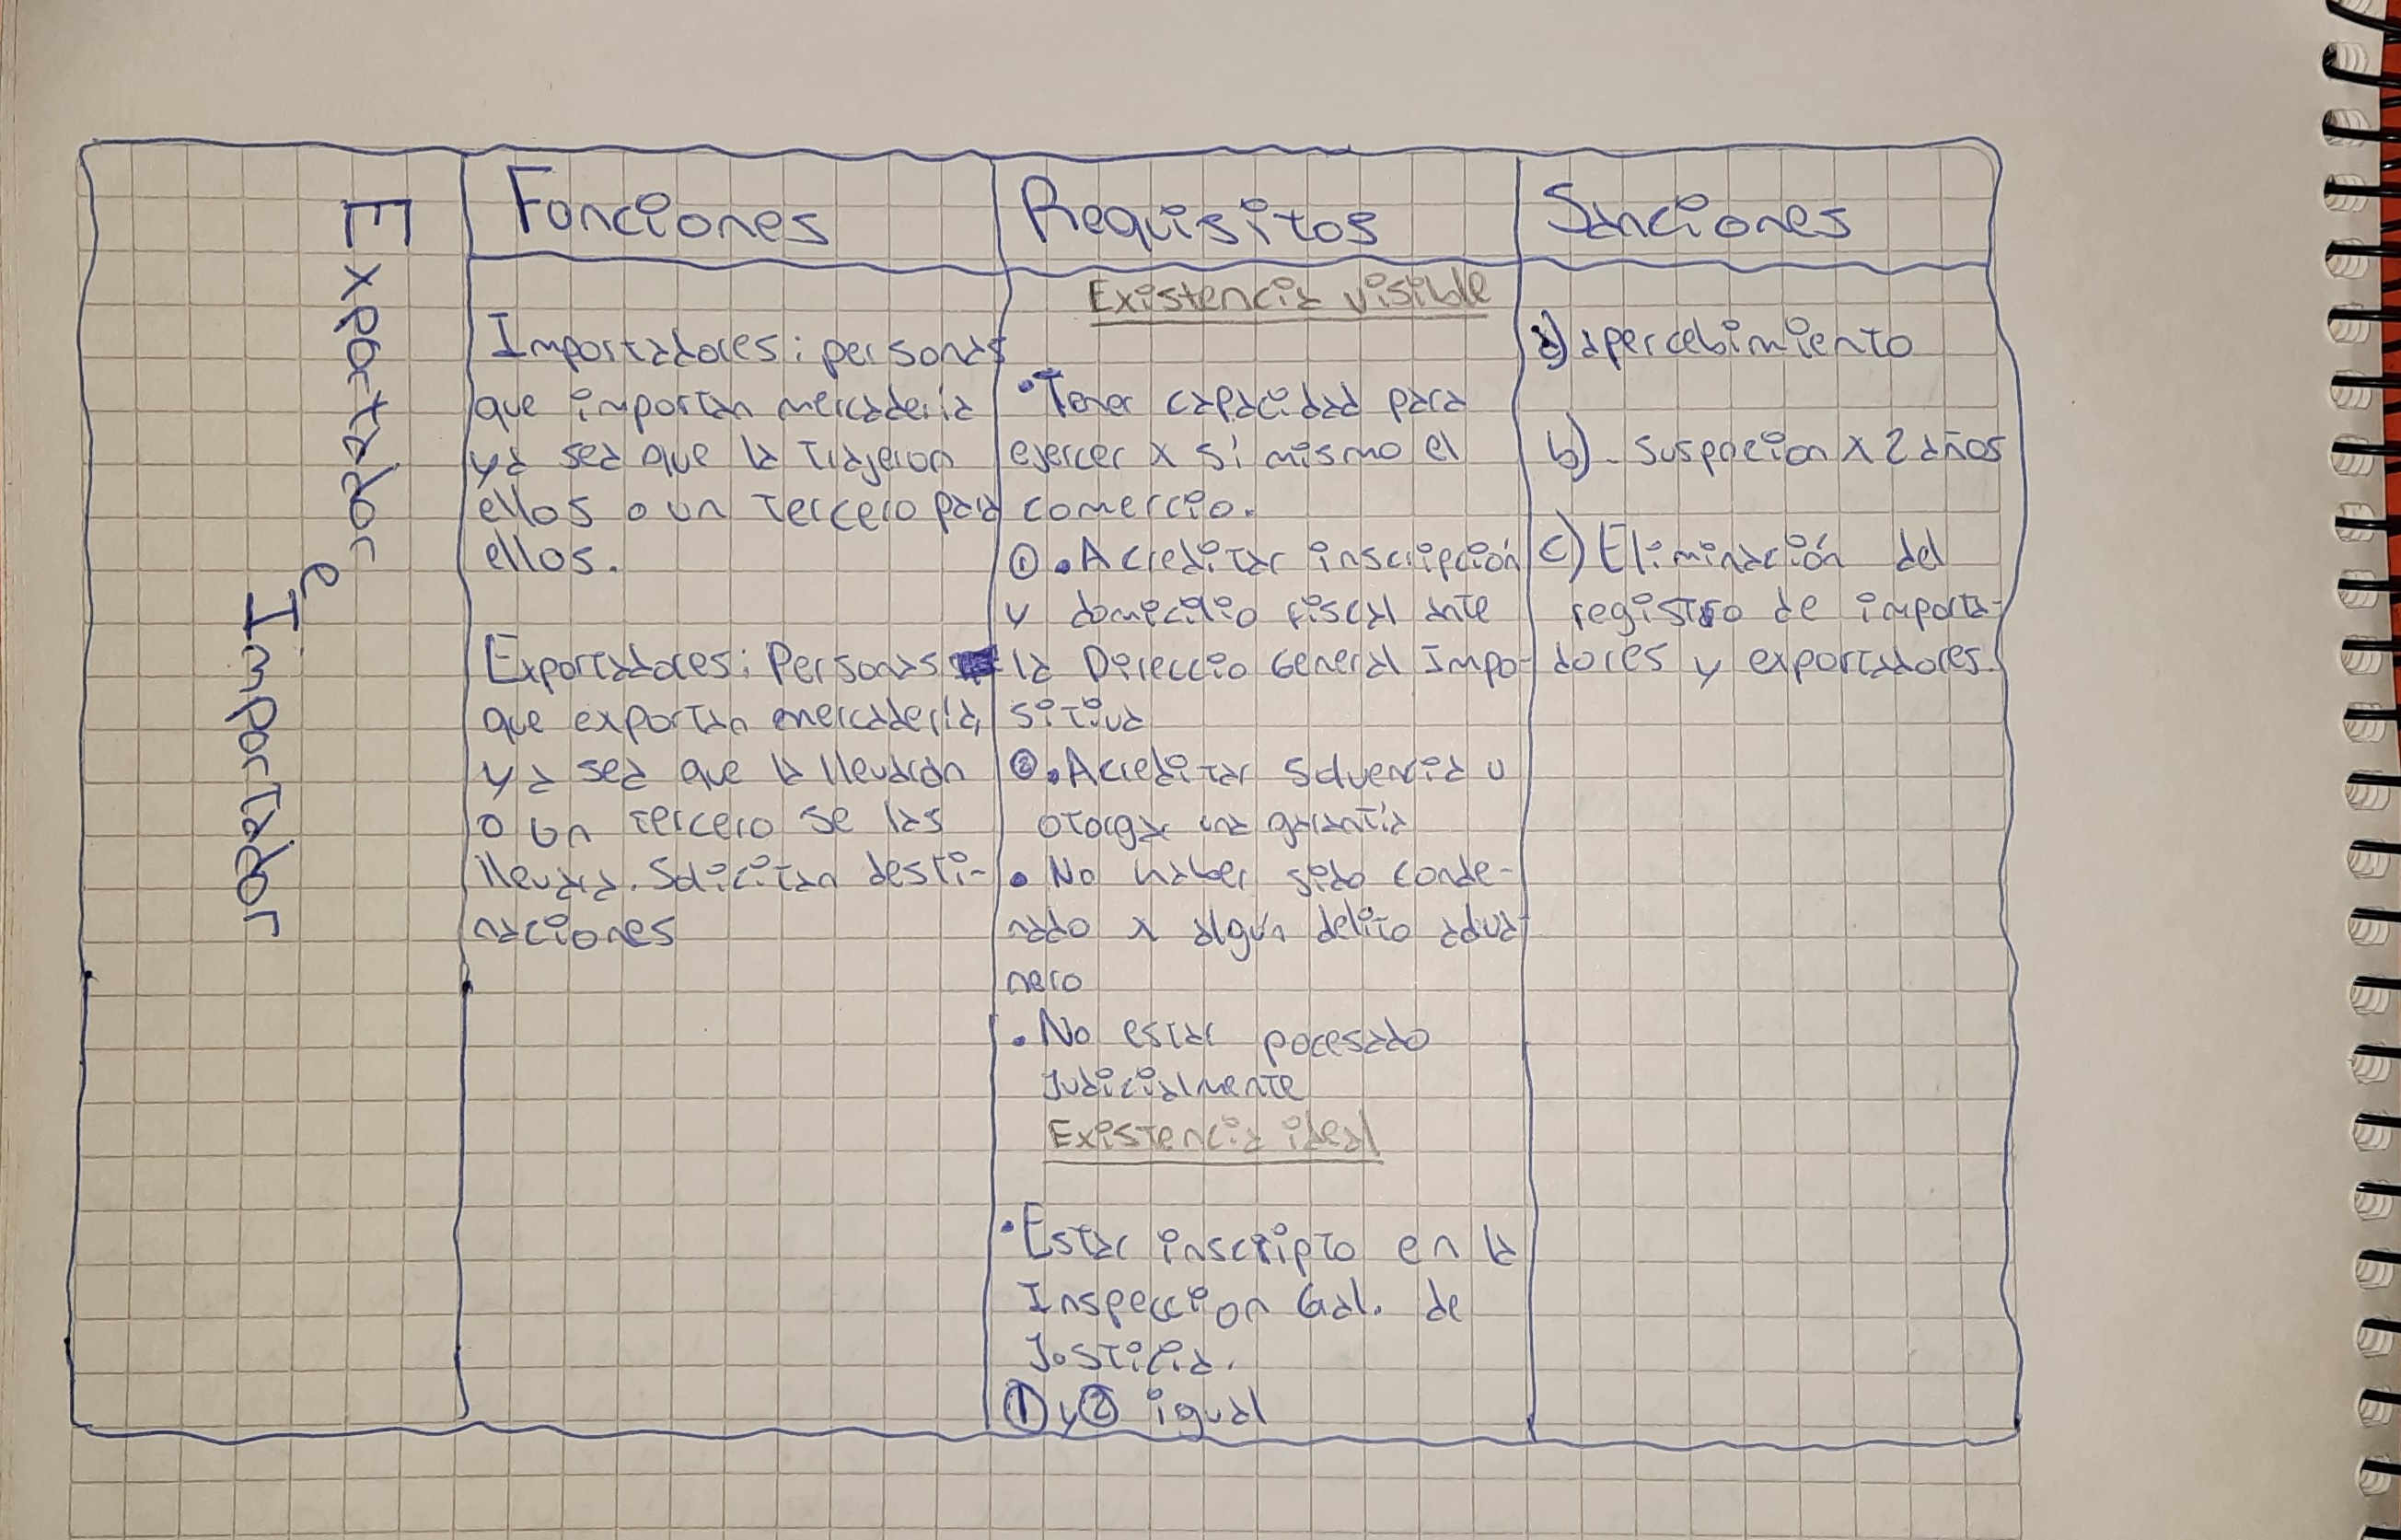 Exportador
e
Importador
Funciones
Importadores: personas
que importan mercaderia
ya sea que la trajeron
ellos o un tercero para
ellos.
Exportadores: Personas
que exportan mercadería,
ya sea que la llevaron
o un tercero se las
llevara. Solicitan desti-
naciones
Requisitos
Existencia visible
• Tener capacidad para
ejercer x sí mismo el
comercio.
① • Acreditar inscripción
y domicilio fiscal ante
la Direccio General Impo-
sitiva
② • Acreditar solvencia u
otorgar una garantía
• No haber sido conde-
nado x algún delito adua
nero
• No estar pocesado
Judicialmente
Existencia ideal
• Estar inscripto en la
Inspeccion Gral. de
Justicia.
① y ② igual
Sanciones
a) apercebimiento
b) - suspocion x 2 años
c) Eliminación del
registro de importa-
dores y exportadores.